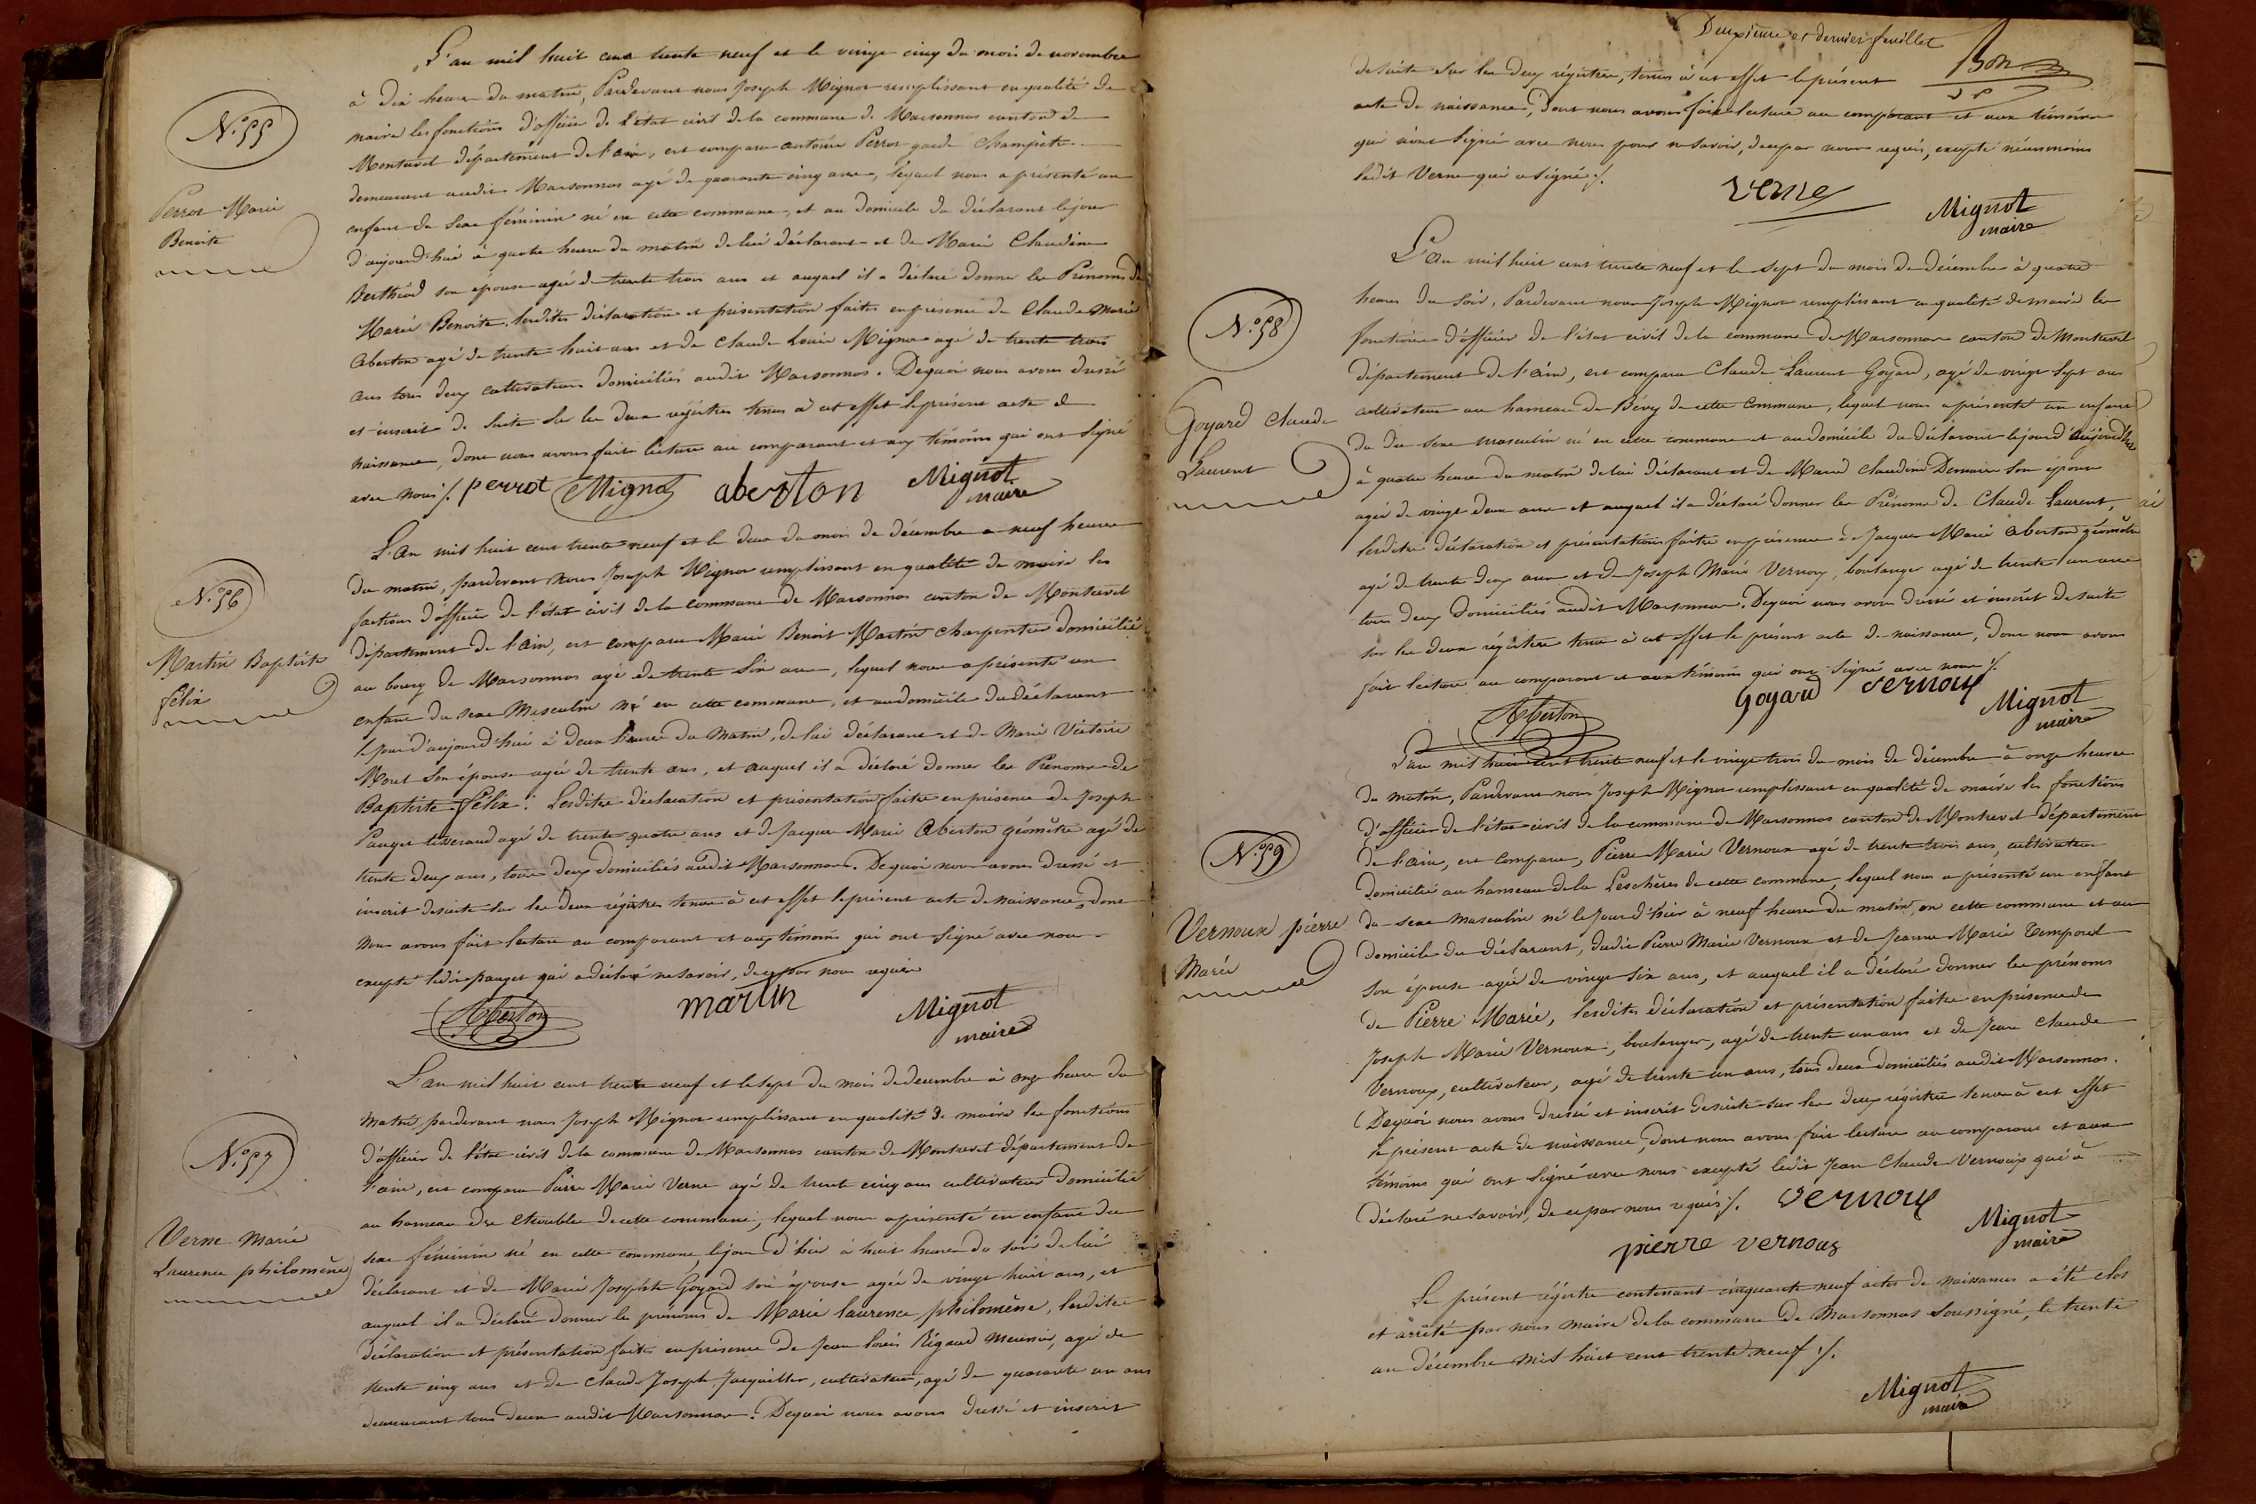 L'an mil huit cent trente neuf et le vingt cinq du mois de novembre
à dix heures du matin, Pardevant nous Joseph Mignot remplissant en qualité de
maire les fonctions d'officier de l'état civil de la commune de Marsonnas canton de
Montrevel département de l'ain, est comparu antoine Perrot garde champêtre
demeurant audit Marsonnas agé de quarante cinq ans, lequel nous a présenté un
enfant du sexe féminin né en cette commune, et au domicile du déclarant le jour
d'aujourd'hui à quatre heures du matin de lui déclarant et de Marie Claudine
Berthoud son épouse agée de trente trois ans et auquel il a déclaré donner les Prénoms de
Marie Benoite. lesdites déclaration et présentation faites en présence de Claude Marie
Aberton agé de trente huit ans et de Claude Louis Mignot agé de trente trois
ans tous deux cultivateurs domiciliés audit Marsonnas. De quoi nous avons dressé
et inscrit de suite sur les deux régistres tenus à cet effet le présent acte de
naissance, dont nous avons fait lecture au comparant et aux témoins qui ont signé
avec nous ./. perrot Mignot aberton Mignot
maire
N.o 55
Perrot Marie
Benoite
L'an mil huit cent trente neuf et le deux du mois de décembre a neuf heures
du matin, pardevant nous Joseph Mignot remplissant en qualité de maire les
fonctions d'officier de l'état civil de la commune de Marsonnas canton de Montrevel
département de l'ain, est comparu Marie Benoit Martin charpentier domicilié
au bourg de Marsonnas agé de trente six ans, lequel nous a présenté un
enfant du sexe Masculin né en cette commune, et au domicile du déclarant
le jour d'aujourd'hui à deux heures du matin, de lui déclarant et de Marie Victoire
Morel son épouse agée de trente ans, et auquel il a déclaré donner les Prénoms de
Baptiste félix. Lesdites déclaration et présentation faites en présence de Joseph
Pauget tisserand agé de trente quatre ans et de Jacques Marie Aberton géomètre agé de
trente deux ans, tous deux domiciliés audit Marsonnas. De quoi nous avons dressé et
inscrit desuite sur les deux régistres tenus à cet effet le présent acte de naissance, dont
nous avons fait lecture au comparant et aux témoins qui ont signé avec nous
excepté ledit pauget qui a déclaré ne savoir, de ce par nous requis
Aberton martin Mignot
maire
N.o 56
Martin Baptiste
félix
L'an mil huit cent trente neuf et le sept du mois de décembre à onze heures du
matin pardevant nous Joseph Mignot remplissant en qualité de maire les fonctions
d'officier de l'état civil de la commune de Marsonnas canton de Montrevel département de
l'ain, est comparu Pierre Marie Verne agé de trente cinq ans cultivateur domicilié
au hameau des de cette commune, lequel nous a présenté un enfant du
sexe féminin né en cette commune, le jour d'hier à huit heures du soir de lui
déclarant et de Marie Josephte Goyard son épouse agée de vingt huit ans, et
auquel il a déclaré donner les prénoms de Marie laurence philomène, lesdites
déclaration et présentation faites en présence de Jean Louis Rigaud Meunier, agé de
trente cinq ans et de Claude Joseph Jacquiller, cultivateur, agé de quarante un ans
demeurant tous deux audit Marsonnas. De quoi nous avons dressé et inscrit
N.o 57
Verne Marie
Laurence philomène
Deuxième et dernier feuillet
desuite sur les deux régistres, tenus à cet effet le présent
acte de naissance, dont nous avons fait lecture au comparant et aux témoins
qui n'ont signé avec nous pour ne savoir, de ce par nous requis, excepté néanmoins
ledit Verne qui a signé ./.
verne Mignot
maire
L'an mil huit cent trente neuf et le sept du mois de décembre à quatre
heures du soir, Pardevant nous Joseph Mignot remplissant en qualité de maire les
fonctions d'officier de l'état civil de la commune de Marsonnas canton de Montrevel
département de l'ain, est comparu Claude Laurent Goyard, agé de vingt sept ans
cultivateur au hameau de Bévy de cette commune, lequel nous a présenté un enfant
du du sexe masculin né en cette commune et au domicile du déclarant le jour d'aujourd'hui
à quatre heures du matin de lui déclarant et de Marie Claudine son épouse
agée de vingt deux ans et auquel il a déclaré donner les Prénoms de Claude Laurent,
lesdites déclaration et présentation faites en présence de Jacques Marie Aberton géomètre
agé de trente deux ans et de Joseph Marie Vernoux, boulanger agé de trente un ans
tous deux domiciliés audit Marsonnas. De quoi nous avons dressé et inscrit de suite
sur les deux régistres tenus à cet effet le présent acte de naissance, dont nous avons
fait lecture au comparant et aux témoins qui ont signé avec nous ./.
Aberton Goyard vernoux Mignot
maire
N.o 58
Goyard Claude
Laurent
L'an mil huit cent trente neuf et le vingt trois du mois de décembre à onze heures
du matin, Pardevant nous Joseph Mignot remplissant en qualité de maire les fonctions
d'officier de l'état civil de la commune de Marsonnas canton de Montrevel département
de l'ain, est comparu, Pierre Marie Vernoux agé de trente trois ans, cultivateur
domicilié au hameau de la Leschères de cette commune, lequel nous a présenté un enfant
du sexe masculin né le jour d'hier à neuf heures du matin, en cette commune et au
domicile du déclarant, dudit Pierre Marie Vernoux et de Jeanne Marie Temporel
son épouse agée de vingt six ans, et auquel il a déclaré donner les prénoms
de Pierre Marie, lesdites déclaration et présentation faites en présence de
Joseph Marie Vernoux, boulanger, agé de trente un ans et de Jean Claude
Vernoux, cultivateur, agé de trente un ans, tous deux domiciliés audit Marsonnas.
De quoi nous avons dressé et inscrit desuite sur les deux régistres tenus à cet effet
le présent acte de naissance, dont nous avons fait lecture au comparant et aux
témoins qui ont signé avec nous excepté ledit Jean Claude Vernoux qui a
déclaré ne savoir, de ce par nous requis ./. vernoux
pierre vernoux Mignot
maire
N.o 59
Vernoux pierre
Marie
Le présent régistre contenant cinquante neuf actes de naissances a été clos
et arrêté par nous maire de la commune de Marsonnas soussigné, le trente
un décembre mil huit cent trente neuf ./.
Mignot
maire